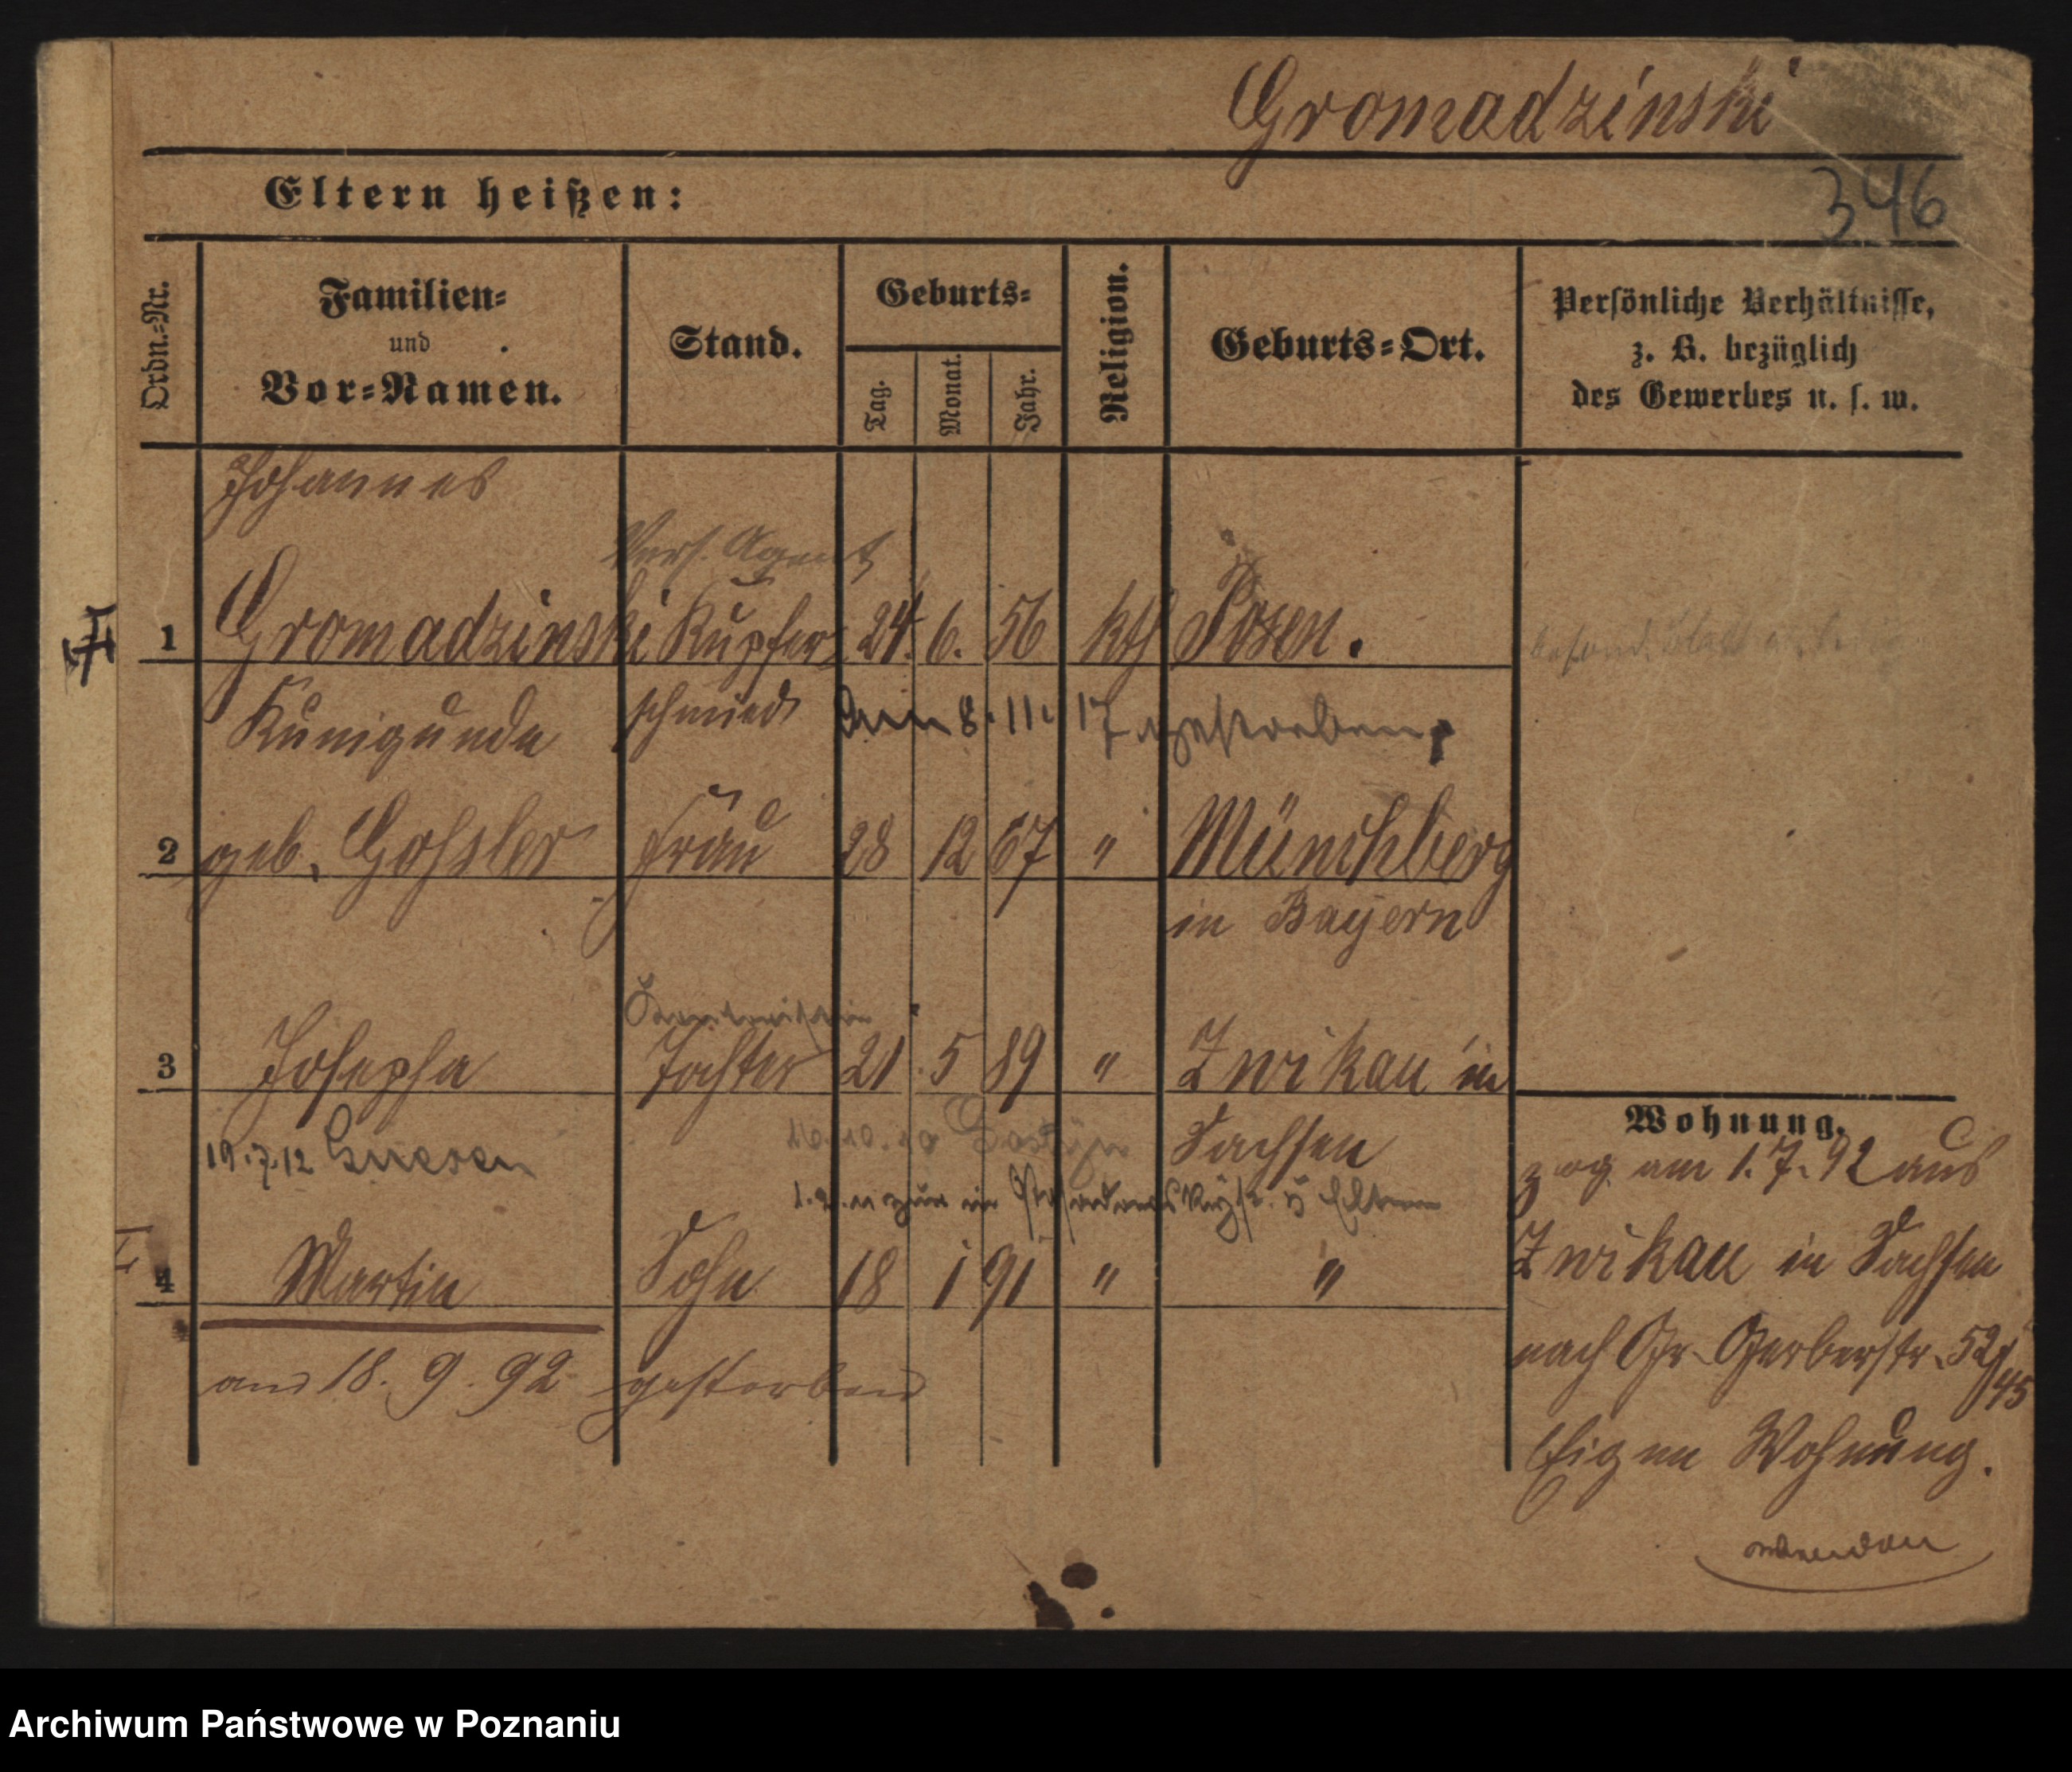 Gromadzinski
346
Eltern heißen:
Ordn.=Nr.
Familien= und Vor=Namen.
Stand.
Geburts=
Tag.
Monat.
Jahr.
Religion.
Geburts=Ort.
Persönliche Verhältnisse,
z. B. bezüglich
des Gewerbes u. s. w.
Johannes
Vers. Agent
1 Gromadzinski Kupfer= 24. 6. 56 kth Posen.
Kunigunde schmied 8. 11. 17 gestorben
2 geb. Gossler Frau 28 12 67 " Münchberg
in Bayern
3 Josepha Tochter 21. 5 89 " Zwikau in
19.7.12 Gnesen 16.10.10 Sachsen
Wohnung.
4 Martin Sohn 18 1 91 " "
am 18. 9. 92 gestorben
zog am 1. 7. 92 aus
Zwikau in Sachsen
nach Gr. Gerberstr. 52/
45
Eigene Wohnung.
Archiwum Państwowe w Poznaniu